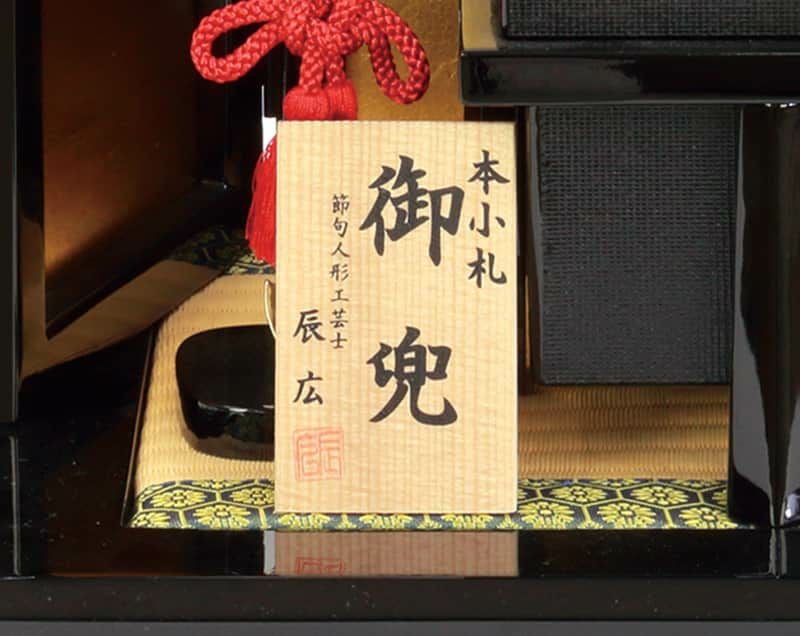 本小札
御兜
節句人形工芸士
辰広